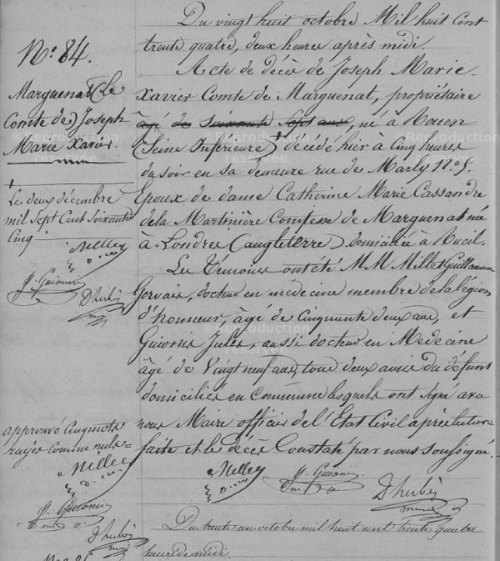 Du vingt huit octobre Mil huit Cent
trente quatre, deux heures après midi.
No. 84.
Acte de décès de Joseph Marie
Xavier Comte de Marguenat, propriétaire
âgé de Soixante Sept ans, né à Rouen
(Seine Inférieure) décédé hier à Cinq heures
du soir en sa demeure rue de Marly no. 5.
Epoux de dame Catherine Marie Cassandre
de la Martinière Comtesse de Marguenat née
à Londres (angleterre) domiciliée à Rueil.
Les témoins ont été M.M. Millet Guillaume
Gervais, docteur en médecine membre de la légion
d'honneur, âgé de Cinquante deux ans, et
Guionis Jules, aussi docteur en Médecine
âgé de Vingt neuf ans, tous deux amis du défunt
domiciliés en Commune lesquels ont signé avec
nous Maire officier de l'État Civil après lecture
faite et le décès Constaté par nous soussigné.
Marguenat (le
Comte de) Joseph
Marie Xavier.
Le deux décembre
mil Sept Cent Soixante
Cinq.
approuvé Cinq mots
rayés comme nuls
Du trente un octobre mil huit cent trente quatre
heures de midi.
Reproduction
réservée